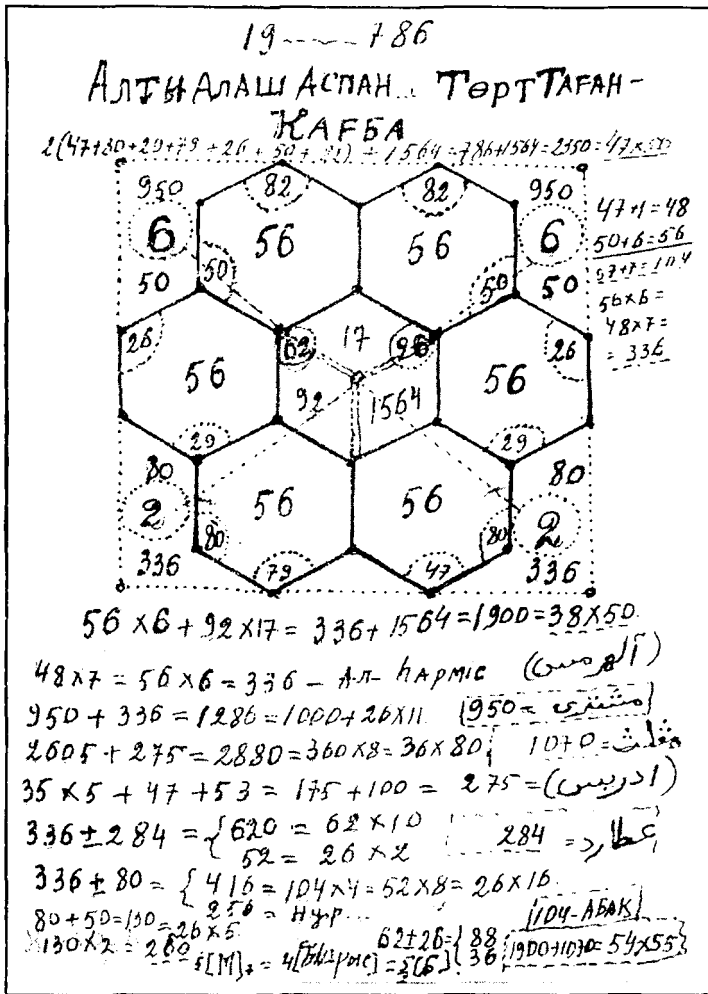 19 ----- 786
АЛТЫ АЛАШ АСПАН.. ТӨРТ ТАҒАН-
ҚАҒБА
2(47+80+29+79+26+50+82) + 1564=786+1564=2350=47×50
950 82 82 950
6 56 56 6
50 50 50 50
47+1=48
50+6=56
97+7=104
56×6=
48×7=
= 336
26 62 17 26 26
56 92 1564 56
29 29
80 80
2 56 56 2
80 80
336 79 47 336
56×6+92×17= 336+1564=1900=38×50
48×7=56×6=336 – Ал- Һармїс (آلهرمس)
950+336=1286=1000+26×11 950= مشترى
2605+275=2880=360×8=36×80 1070= مثلث
35×5+47+53= 175+100= 275=(ادريس)
336±284= { 620 = 62×10
52 = 26×2 284 = عطارد
336±80= { 416=104×4=52×8=26×16
256 = Нұр...
80+50=130=26×5
130×2=260
104-АБАК
62±26={ 88
36 1900+1070=54×55